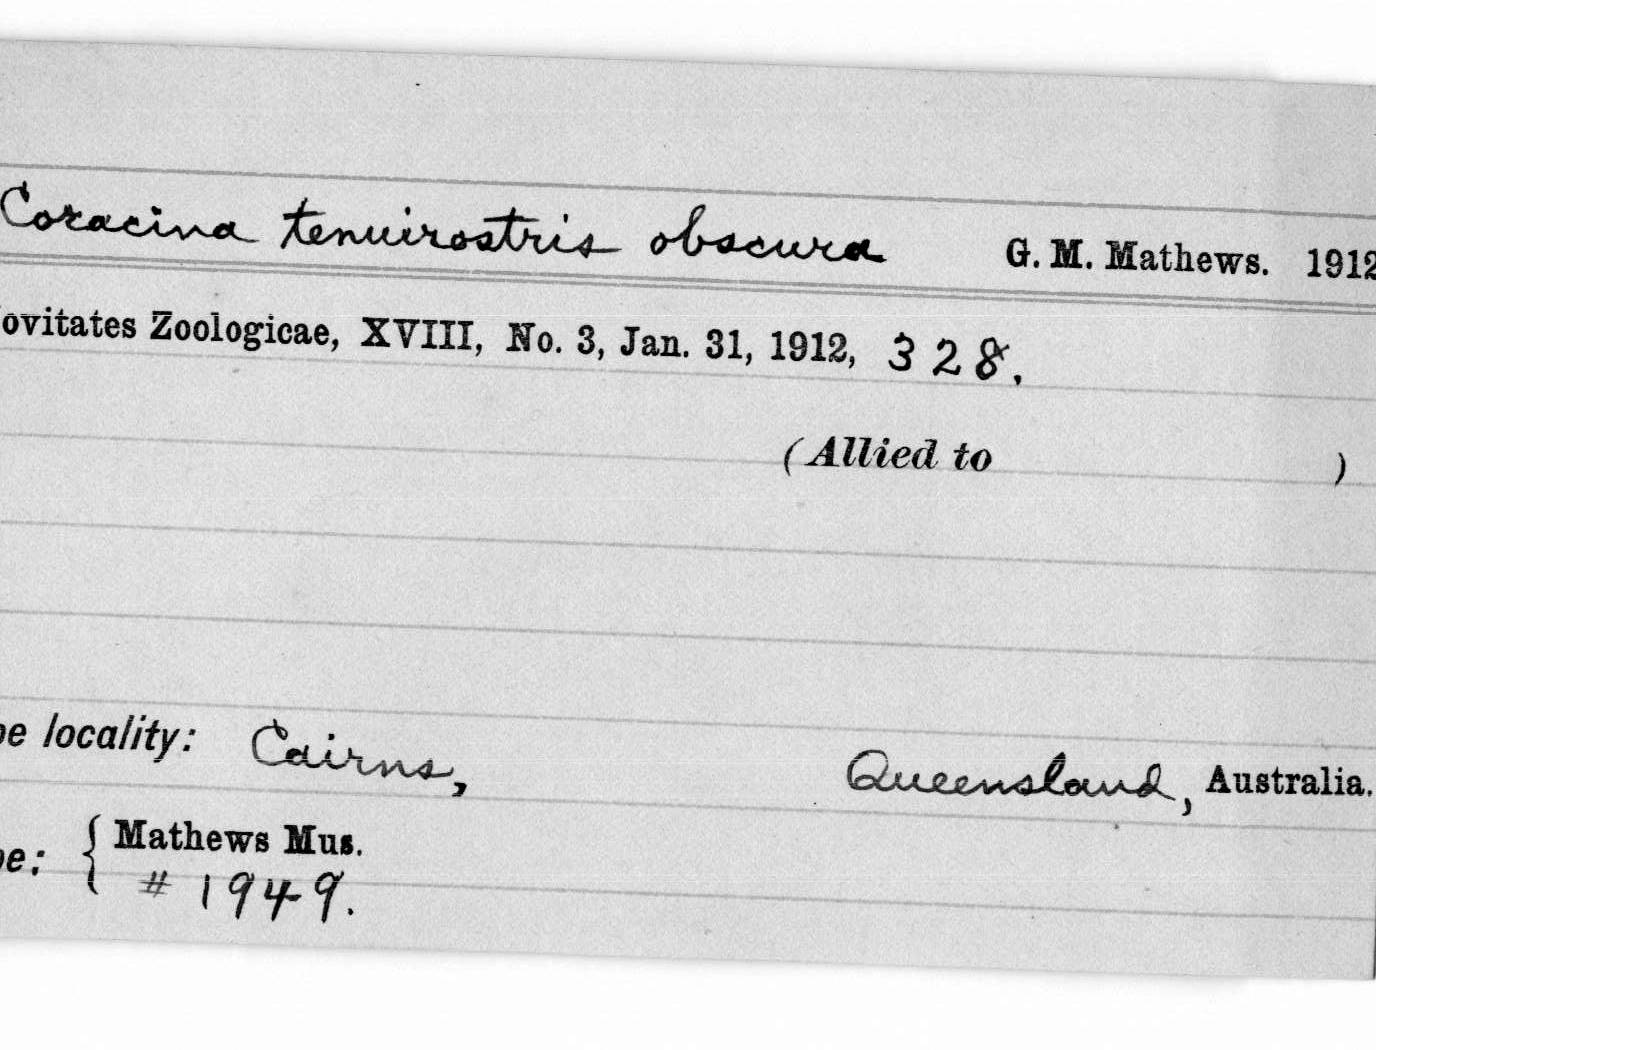 Coracina tenuirostris obscura G. M. Mathews. 1912
ovitates Zoologicae, XVIII, No. 3, Jan. 31, 1912, 328.
(Allied to )
pe locality: Cairns, Queensland, Australia.
pe: { Mathews Mus.
# 1949.